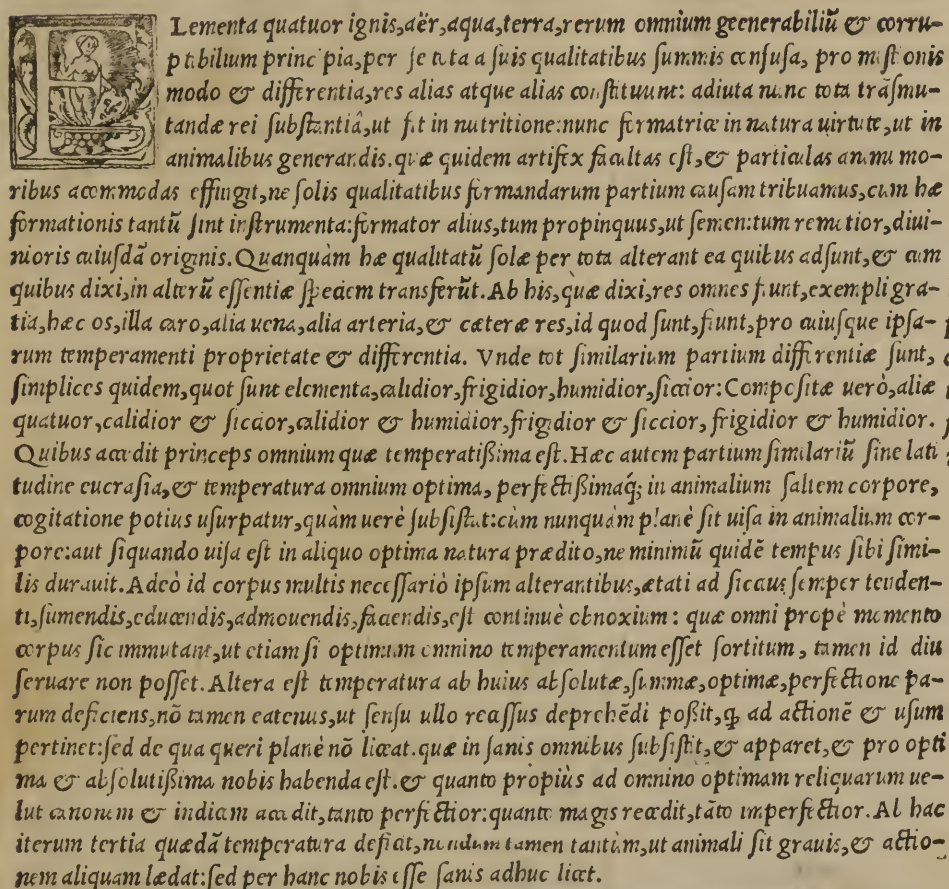 ELementa quatuor ignis,aër,aqua,terra,rerum omnium geenerabiliū & corru-
ptibilium principia,per se tota a suis qualitatibus summis confusa, pro mistionis
modo & differentia,res alias atque alias constituunt: adiuta nunc tota trāsmu-
tandæ rei substantiâ,ut fit in nutritione:nunc formatrice in natura uirtute,ut in
animalibus generandis.quæ quidem artifex facultas est,& particulas animi mo-
ribus accommodas effingit,ne solis qualitatibus formandarum partium causam tribuamus,cum hæ
formationis tantū sint instrumenta:formator alius,tum propinquus,ut semen:tum remotior,diui-
nioris cuiusdā originis. Quanquàm hæ qualitatū solæ per tota alterant ea quibus adsunt,& cum
quibus dixi,in alterū essentiæ speciem transferūt. Ab his,quæ dixi,res omnes fiunt,exempli gra-
tia,hæc os,illa caro,alia uena,alia arteria,& cæteræ res,id quod sunt,fiunt,pro cuiusque ipsa-
rum temperamenti proprietate & differentia. Vnde tot similarium partium differentiæ sunt,
simplices quidem,quot sunt elementa,calidior,frigidior,humidior,siccior:Compositæ uerò,aliæ
quatuor,calidior & siccior,calidior & humidior,frigidior & siccior, frigidior & humidior.
Quibus accedit princeps omnium quæ temperatißima est. Hæc autem partium similariū sine lati
tudine eucrasia,& temperatura omnium optima, perfectißimaq́; in animalium saltem corpore,
cogitatione potius usurpatur,quàm uerè subsistat:cùm nunquàm planè sit uisa in animalium cor-
pore:aut siquando uisa est in aliquo optima natura prædito,ne minimū quidē tempus sibi simi-
lis durauit. Adeò id corpus multis necessariò ipsum alterantibus,ætati ad siccius semper tenden-
ti,sumendis,educendis,admouendis,faciendis,est continuè obnoxium: quæ omni propè momento
corpus sic immutant,ut etiam si optimum omnino temperamentum esset sortitum, tamen id diu
seruare non posset. Altera est temperatura ab huius absolutæ,summæ,optimæ,perfectione pa-
rum deficiens,nō tamen eatenus,ut sensu ullo recessus deprehēdi poßit,q̃ ad actionē & usum
pertinet:sed de qua queri planè nō liceat.quæ in sanis omnibus subsistit,& apparet,& pro opti
ma & absolutißima nobis habenda est.& quanto propiùs ad omnino optimam reliquarum ue-
lut canonem & indicem accedit,tanto perfectior:quanto magis recedit,tāto imperfectior. Ab hac
iterum tertia quædā temperatura deficit,nondum tamen tantùm,ut animali sit grauis,& actio-
nem aliquam lædat:sed per hanc nobis esse sanis adhuc licet.